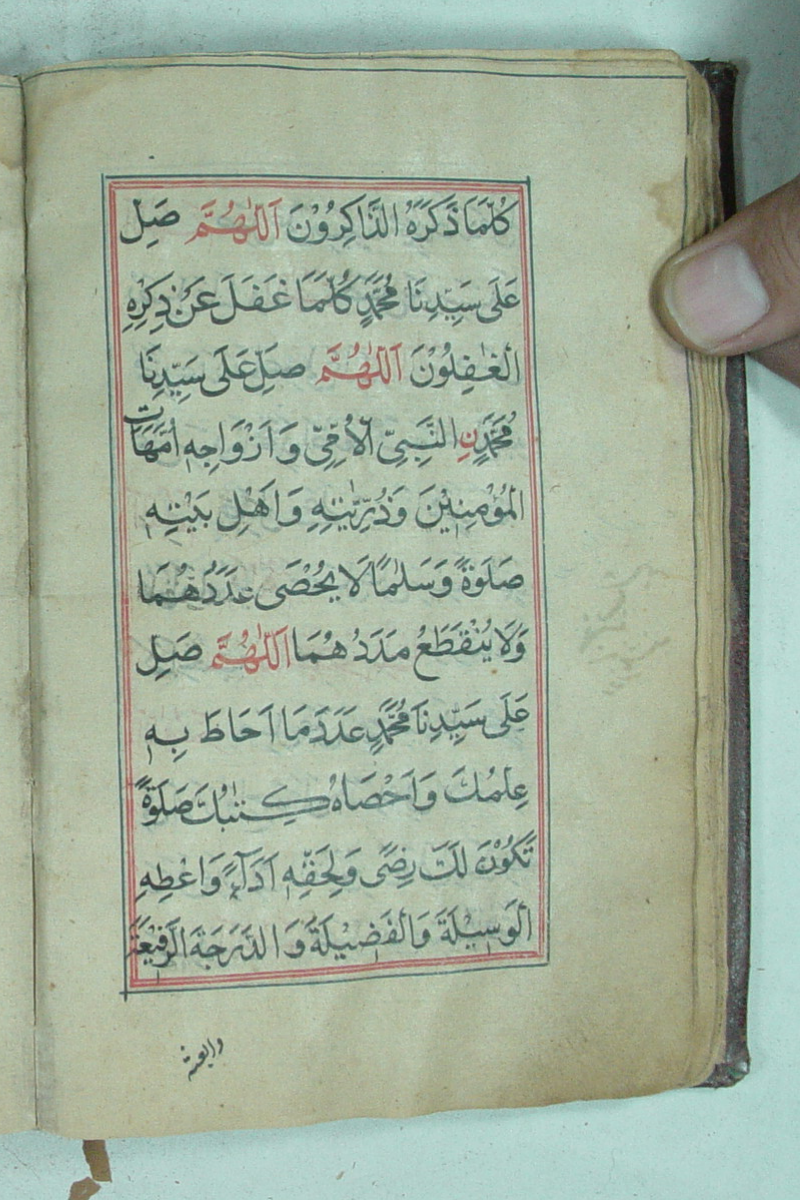 كُلَّمَا ذَكَرَهُ الذَّاكِرُوْنَ اَللّٰهُمَّ صَلِّ
عَلَى سَيِّدِنَا مُحَمَّدٍ كُلَّمَا غَفَلَ عَنْ ذِكْرِهِ
الْغٰفِلُوْنَ اَللّٰهُمَّ صَلِّ عَلَى سَيِّدِنَا
مُحَمَّدٍنِ النَّبِيِّ الْاُمِّيِّ وَ اَزْوَاجِهِ اُمَّهَات
الْمُؤْمِنِيْنَ وَذُرِّيَّتِهِ وَ اَهْلِ بَيْتِهِ
صَلٰوةً وَسَلٰمًا لَا يُحْصَى عَدَدُهُمَا
وَلَا يُنْقَطَعُ مَدَدُ هُمَا اَللّٰهُمَّ صَلِّ
عَلَى سَيِّدِنَا مُحَمَّدٍ عَدَدَ مَا اَحَاطَ بِهِ
عِلْمُكَ وَ اَحْصَاهُ كِتٰبُكَ صَلٰوةً
تَكُوْنَ لَكَ رِضًى وَلِحَقِّهِ اَدَآءً وَ اعْطِهِ
الْوَسِيْلَةَ وَالْفَضِيْلَةَ وَ الدَّرَجَةَ الرَّفِيْعَةَ
وابعثه